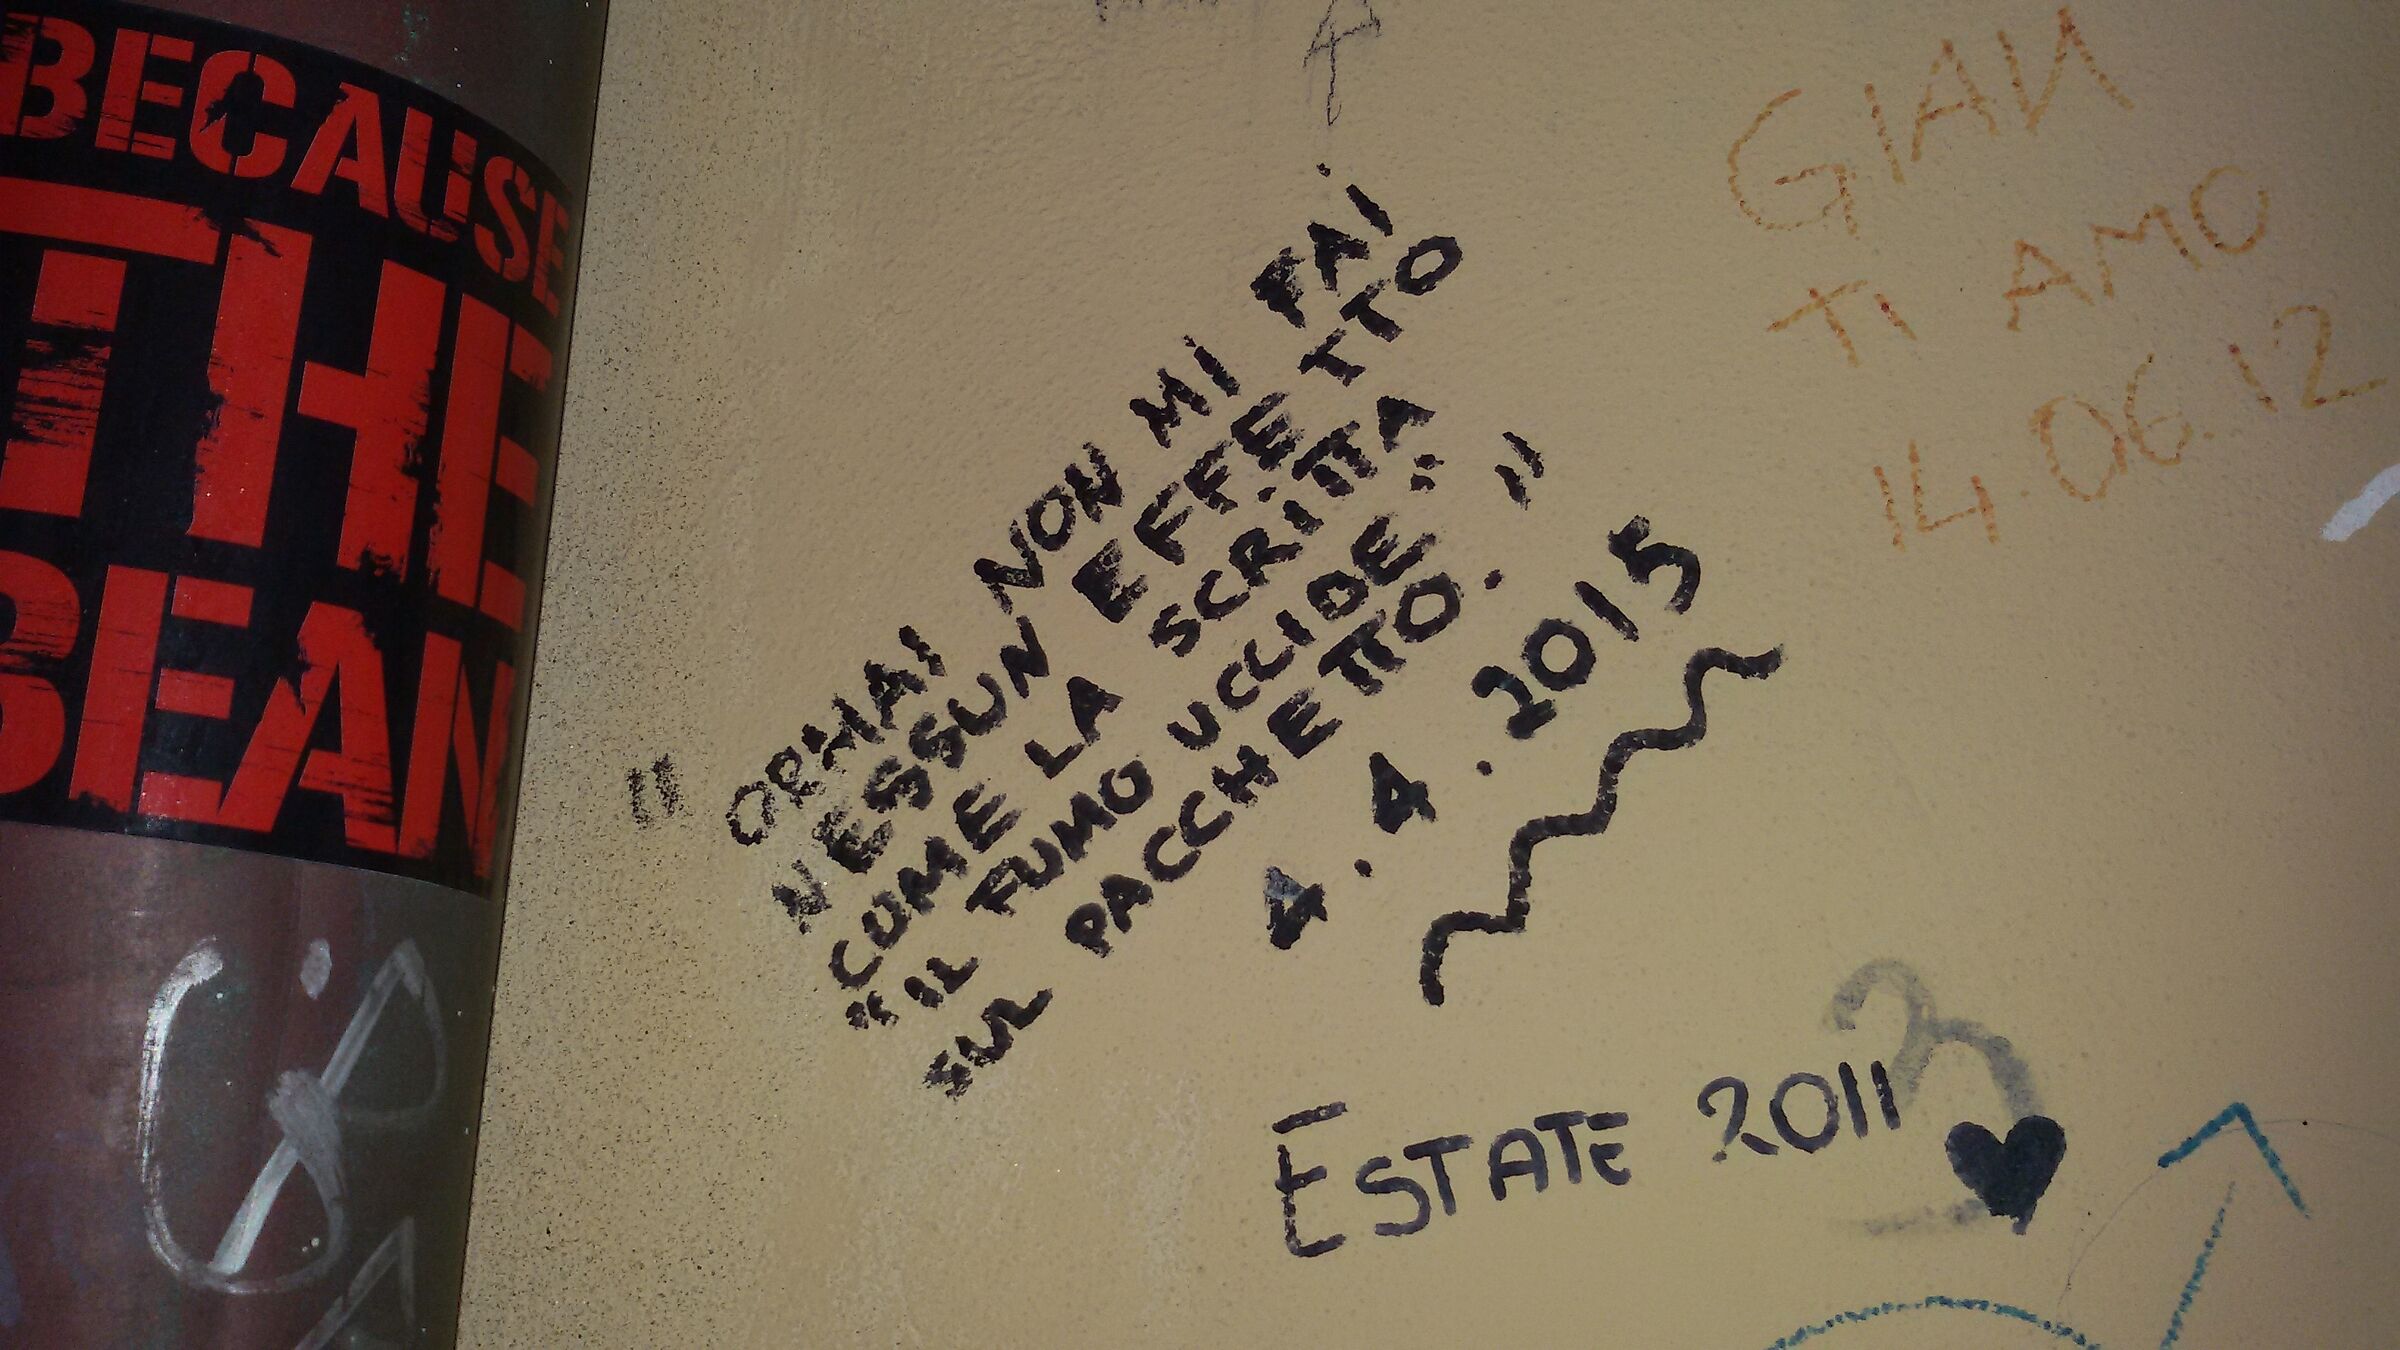 BECAUSE
THE
BEAN
" ORMAI NON MI FAI
NESSUN EFFETTO
COME LA SCRITTA
"IL FUMO UCCIDE"
SUL PACCHETTO. "
4.4.2015
GIAN
TI AMO
14.06.12
ESTATE 2011